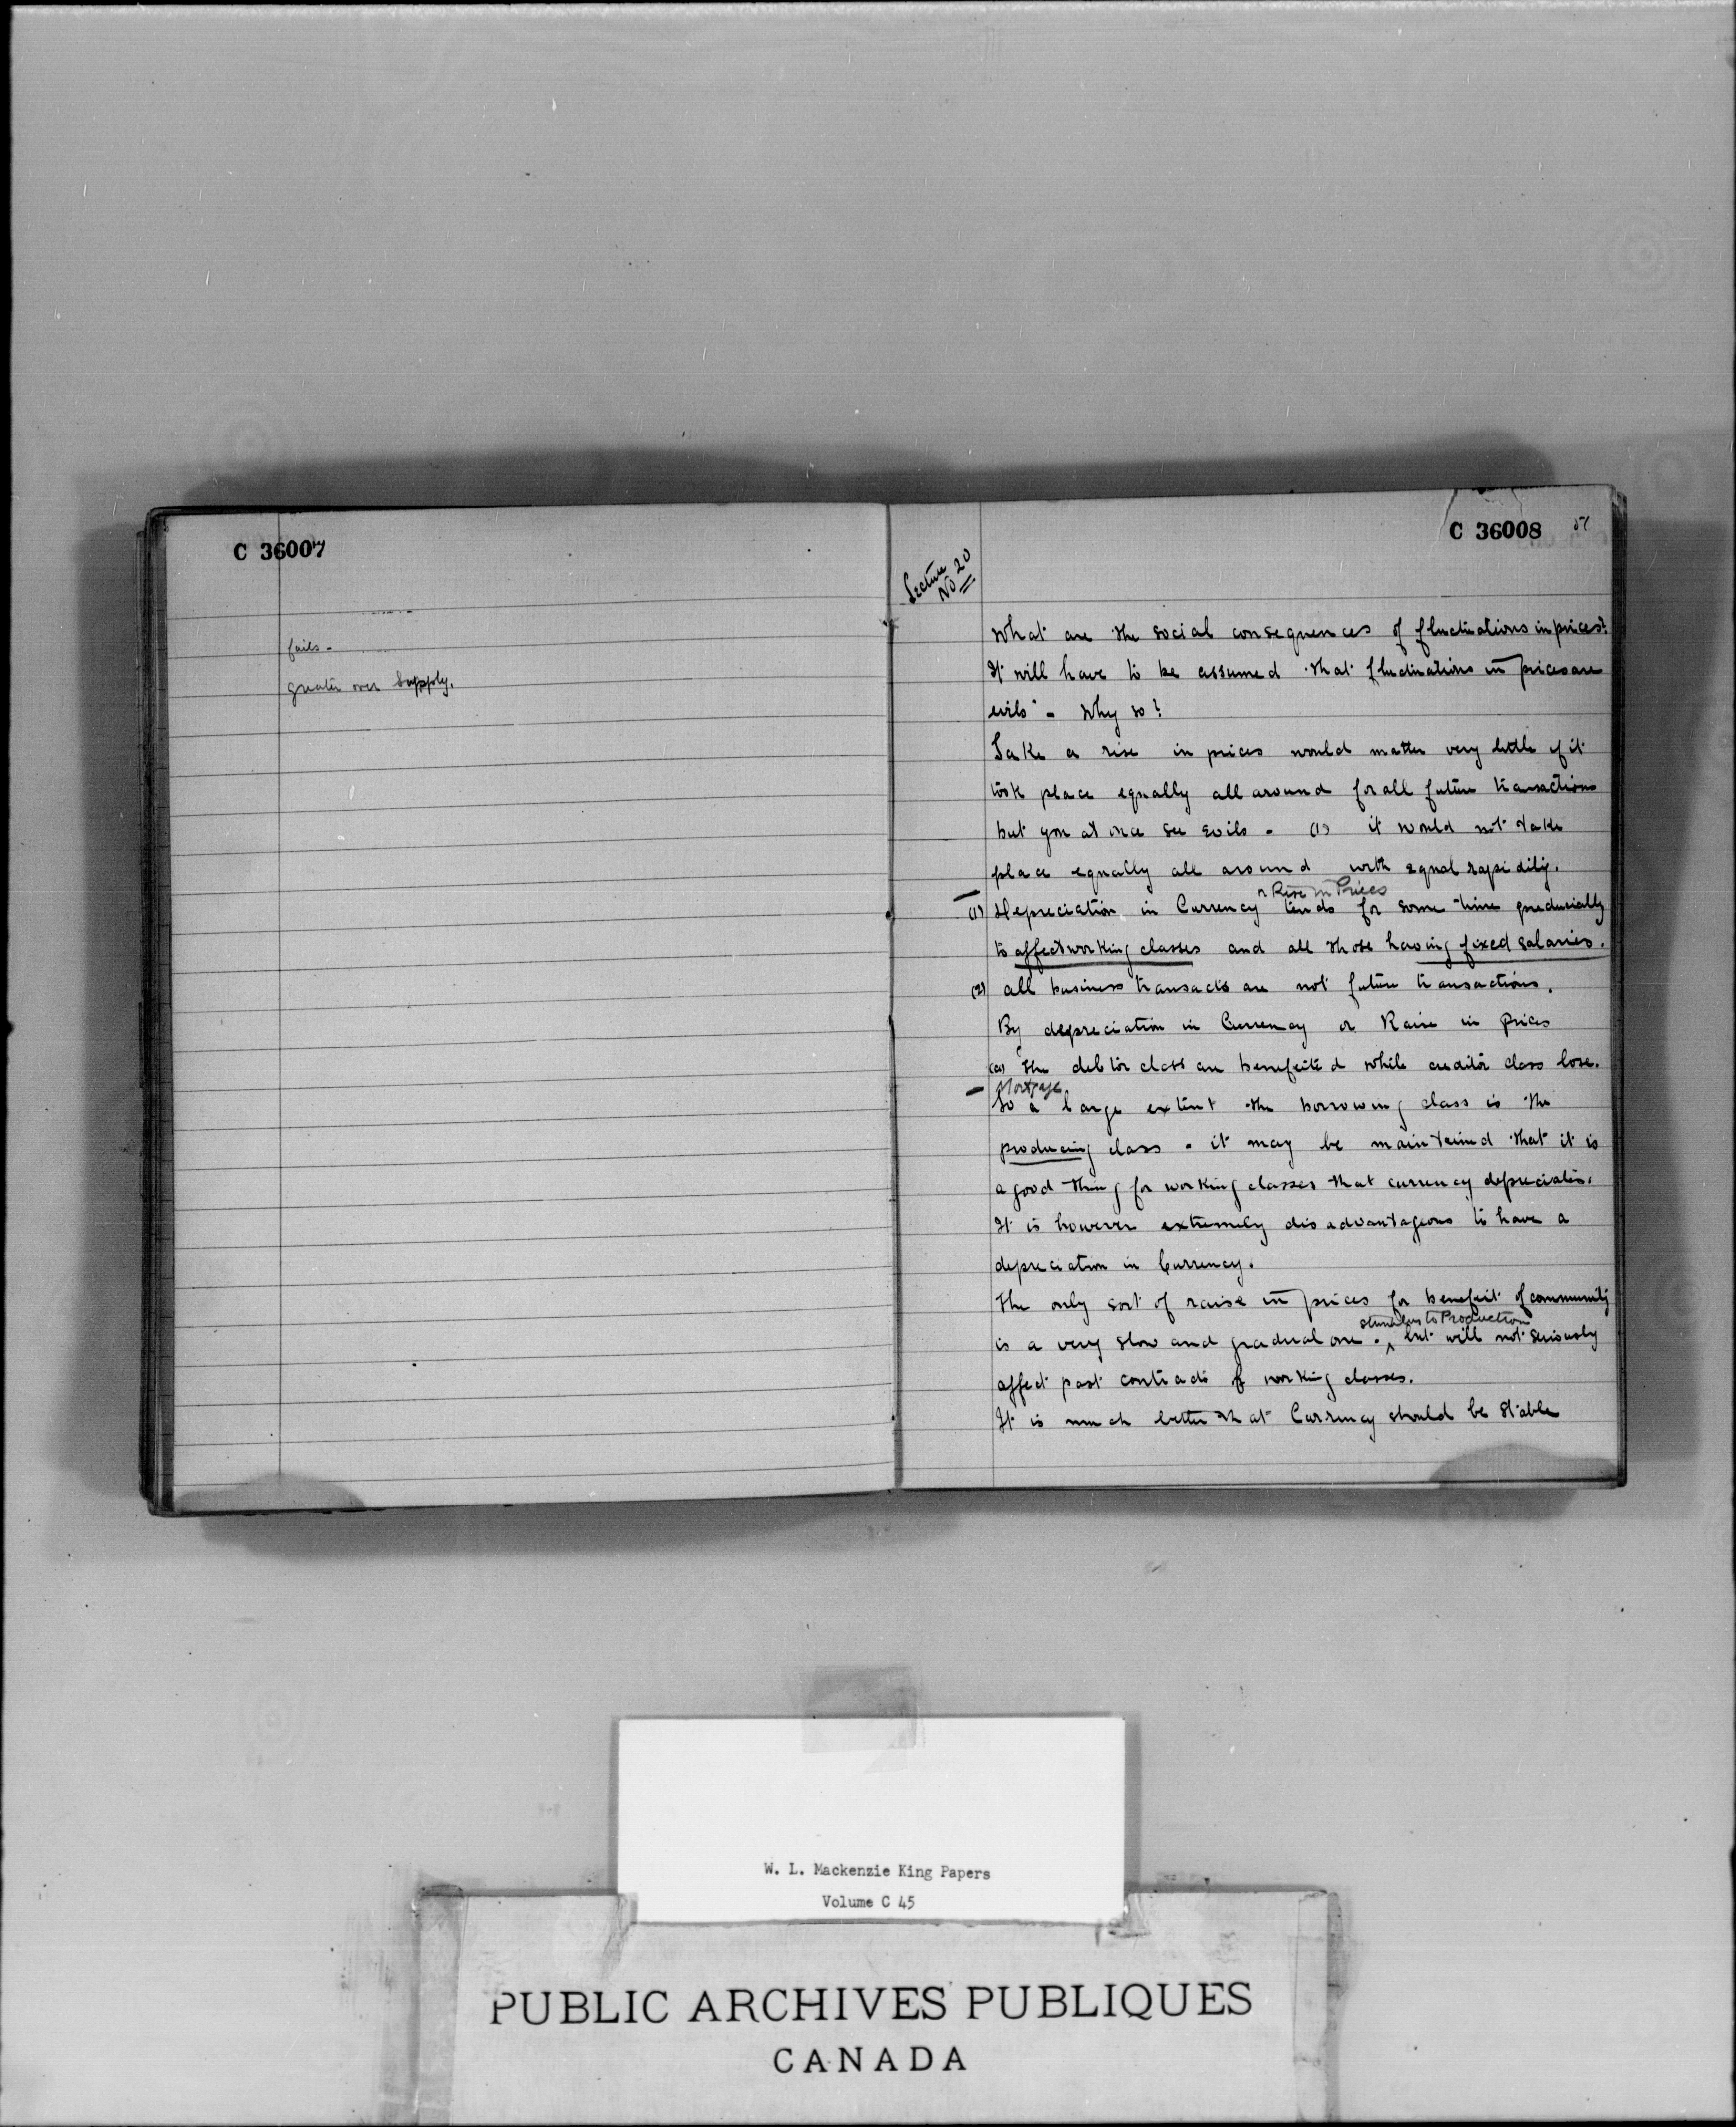 C 36007
fails -
greater over Supply.
C 36008 51
Lecture
No 20
What are the social consequences of fluctuations in prices?
It will have to be assumed that fluctuations in prices are
evils - Why so?
Take a rise in prices would matter very little if it
took place equally all around for all future transactions
but you at once see evils - (1) it would not take
place equally all around with equal rapidity.
or Rise in Prices
(1) Depreciation in Currency tends for some time prejudicially
to affect working classes and all those having fixed salaries.
(2) all business transacts are not future transactions.
By depreciation in Currency or Raise in prices
(a) the debtor class are benefeited while creditor class lose.
Mortgage
To a large extent the borrowing class is the
producing class - it may be maintained that it is
a good thing for working classes that currency depreciates.
It is however extremely disadvantageous to have a
depreciation in Currency.
The only sort of raise in prices for benefit of community
stimulus to Production
is a very slow and gradual one - but will not seriously
affect past contracts of working classes.
It is much better that Currency should be stable
W. L. Mackenzie King Papers
Volume C 45
PUBLIC ARCHIVES PUBLIQUES
CANADA